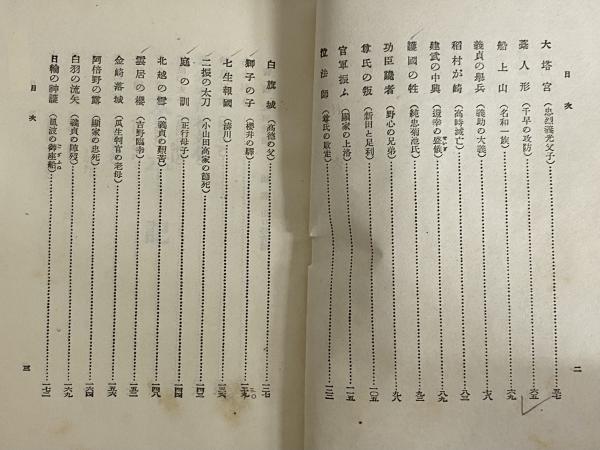 目次
大塔宮(忠烈義光父子)……五七
藁人形(千早の攻防)……六五
船上山(名和一族)……六九
義貞の擧兵(義助の大義)……七八
稻村が崎(高時滅亡)……八三
建武の中興(還幸の盛儀)……八九
護國の牲(純忠菊池氏)……九三
功臣讒者(野心の兄弟)……九八
尊氏の叛(新田と足利)……一〇五
官軍振ふ(顯家の上洛)……一一五
(尊氏の敗走)……一二二
二
白旗城(高德の父)……一二七
獅子の子(櫻井の驛)……一二九
七生報國(湊川)……一三六
二振の太刀(小山田高家の節死)……一四三
庭の訓(正行母子)……一四四
北越の雪(義貞の艱苦)……一四八
雲居の櫻(吉野臨幸)……一五三
金崎落城(瓜生判官の老母)……一五六
阿倍野の露(顯家の忠死)……一六四
白羽の流矢(義貞の陣歿)……一六九
日輪の神護(風波の御座船)……一七三
目次
三